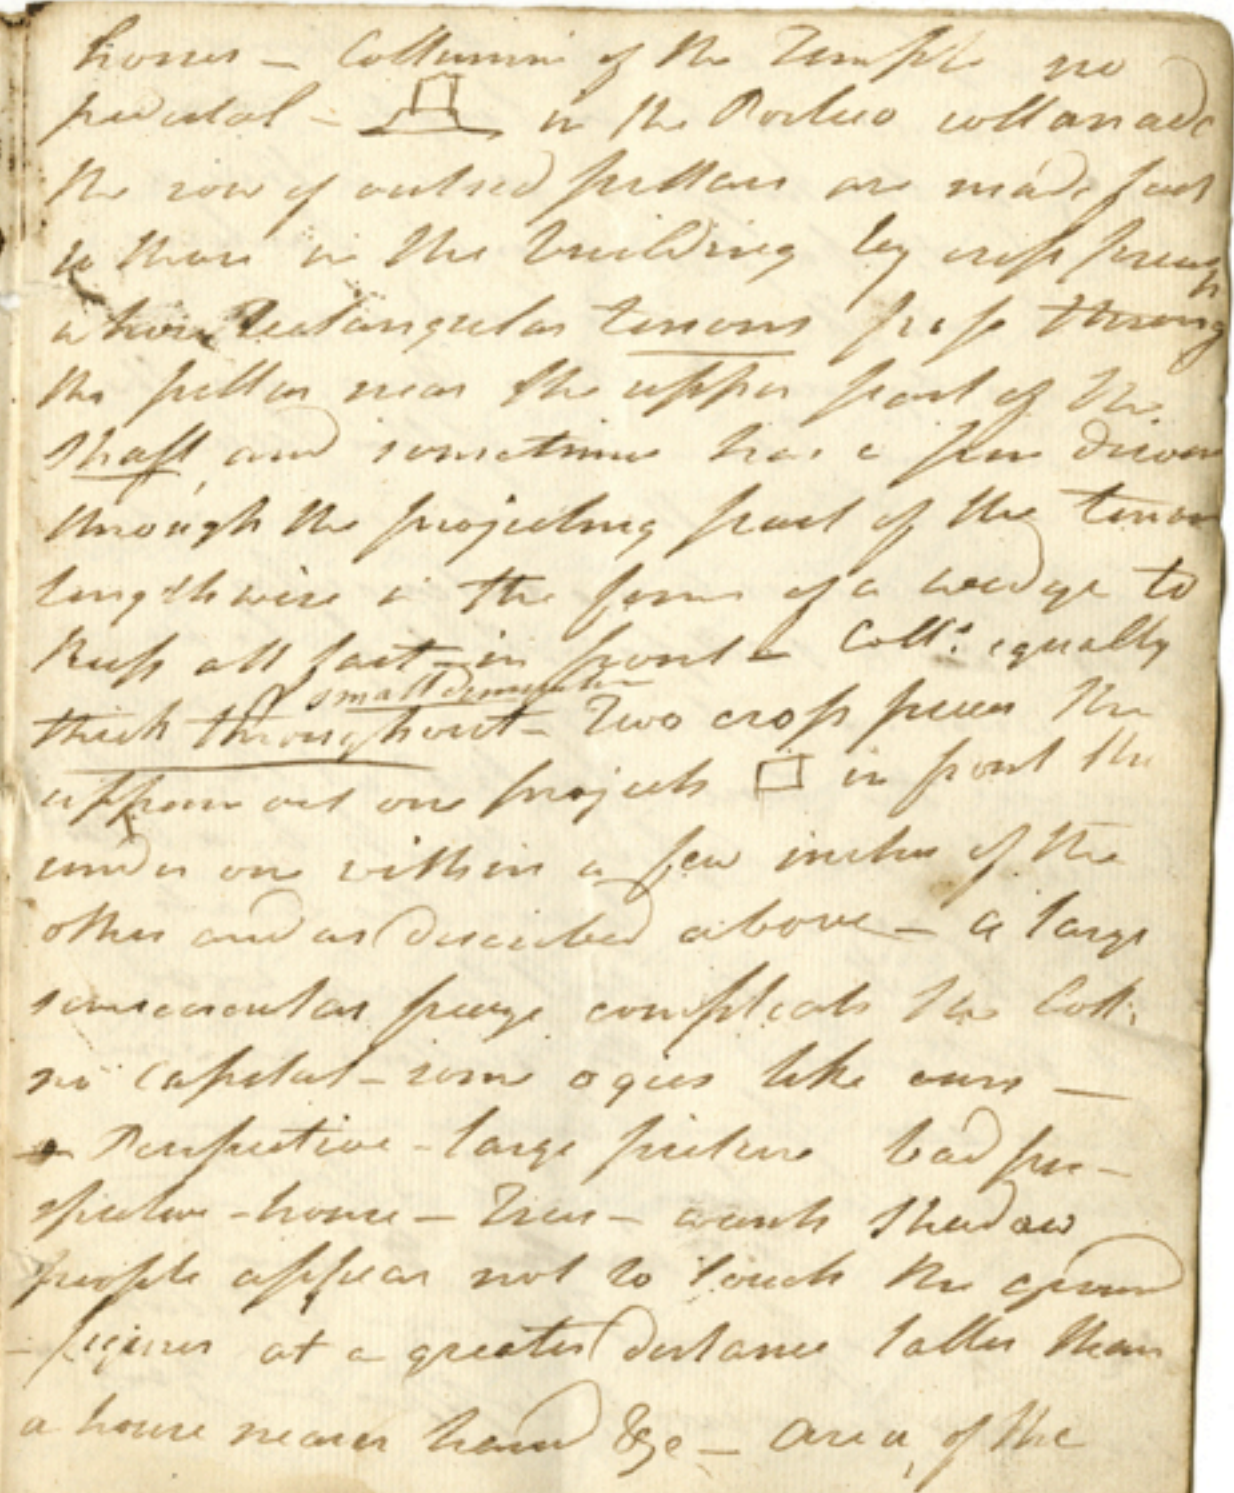 horses – Collumns of the Temple no
pedestal – in the Portico collanade
the row of outsid pillars are made fast
to those in the building by cross pieces
whose Rectangular tenons pass throug
the pillar near the upper part of the
shaft, and sometimes has a pin driven
through the projecting part of the tenon
lengthwise in the form of a wedge to
keep all fast – in front – Coll.s equally
small diminution
thick throughout – Two cross pieces the
one projects in front the
under one within a few inches of the
other and as described above – a large
semicircular compleats the Coll:
no capital – some ogees like ours –
Perspective – large picture bad per–
spective – house – Trees – wants shadow
people appear not to touch the ground
– figures at a greater distance taller than
a house nearer hand &c – area, of the